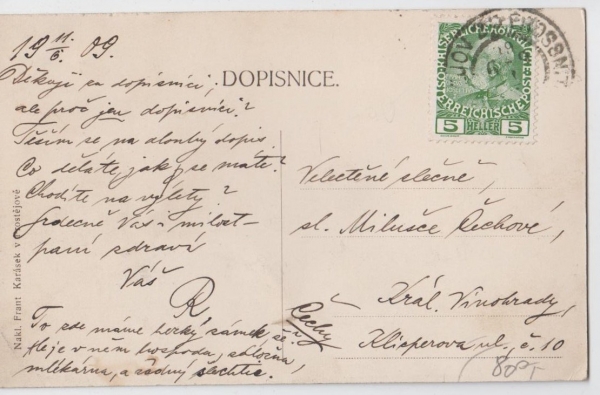 19 11/6 09.
Děkuji za dopisnici,
ale proč jen dopisnici?
Těším se na dlouhý dopis.
Co děláte, jak se máte?
Chodíte na výlety?
Srdečně Vás i milost
paní zdraví
Váš
R.
To zde máme hezký zámek, že?
Ale je v něm hospoda,
mlékárna, a žádný šlechtic.
DOPISNICE.
5 HELLER 5
Velectěné slečně,
sl. Milušce Čechové,
Král. Vinohrady,
Klicperova ul. č. 10
Čechy
80
Nakl. Frant. Karásek v Prostějově